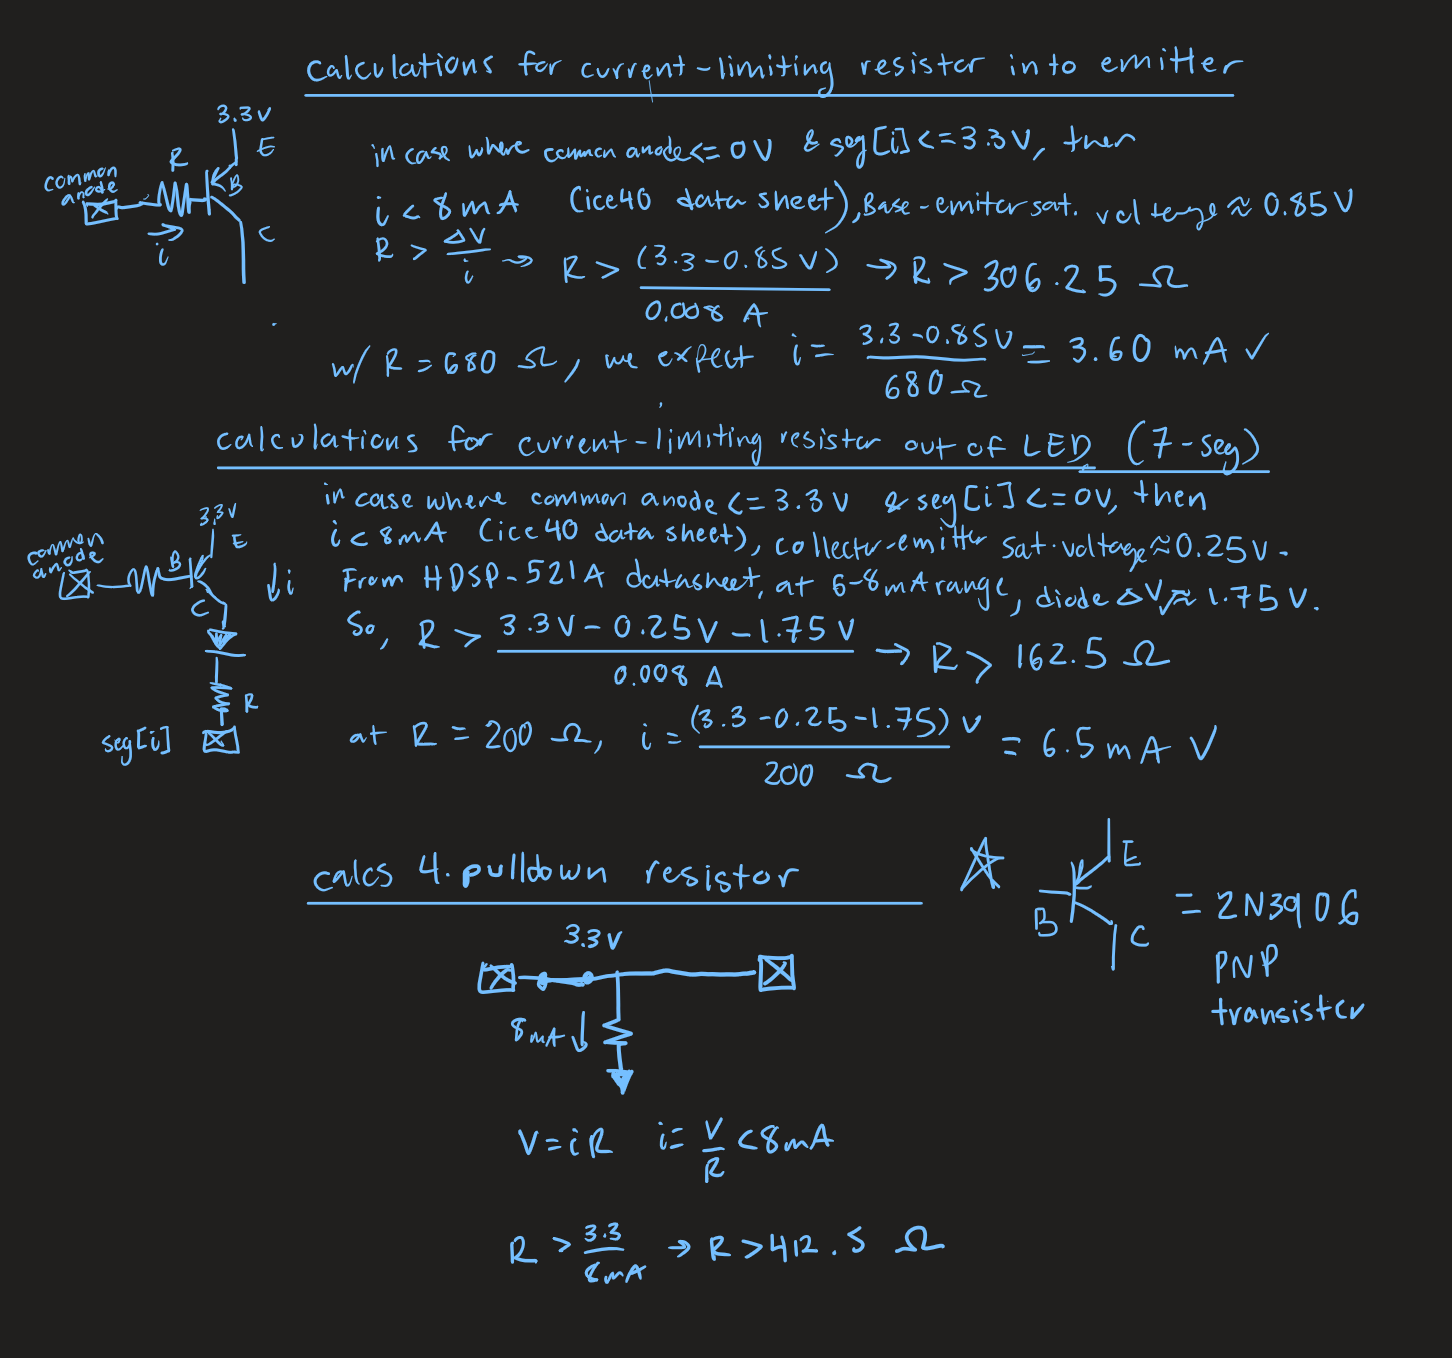 calculations for current-limiting resistor into emitter
3.3V
E
R
B
common
anode
i
C
in case where common anode <= 0V & seg[i] <= 3.3V, then
i < 8mA (ice40 data sheet), Base-emitter sat. voltage ≈ 0.85V
R > ΔV/i → R > (3.3-0.85 V)/0.008 A → R > 306.25 Ω
w/ R = 680 Ω, we expect i = 3.3-0.85V/680Ω = 3.60 mA ✓
calculations for current-limiting resistor out of LED (7-seg)
3.3V
E
common
anode
B
C
i
R
seg[i]
in case where common anode <= 3.3V & seg[i] <= 0V, then
i < 8mA (ice40 data sheet), collector-emitter sat. voltage ≈ 0.25V.
From HDSP-521A datasheet, at 6-8mA range, diode ΔV ≈ 1.75V.
So, R > 3.3V - 0.25V - 1.75V/0.008 A → R > 162.5 Ω
at R = 200 Ω, i = (3.3-0.25-1.75)V/200 Ω = 6.5mA ✓
calcs 4. pulldown resistor
3.3V
8mA
V = iR i = V/R < 8mA
R > 3.3/8mA → R > 412.5 Ω
☆
E
B
C
= 2N3906
PNP
transistor